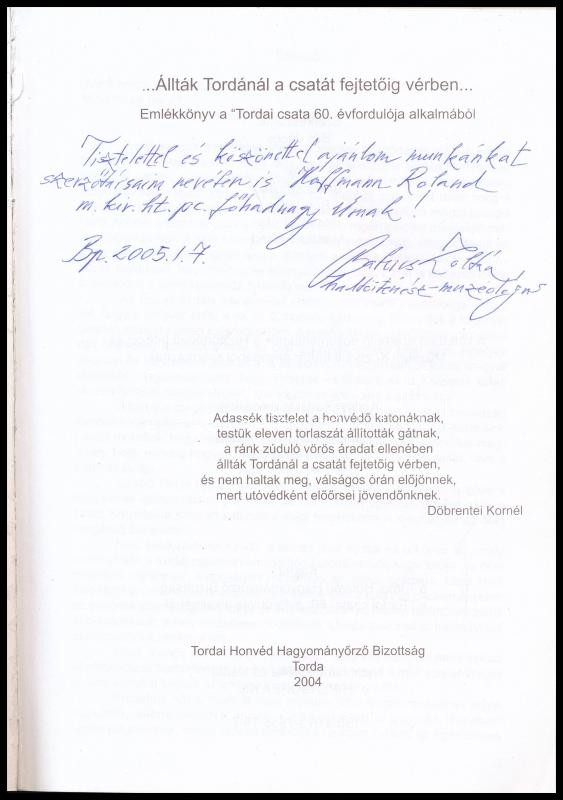 ...Állták Tordánál a csatát fejtetőig vérben...
Emlékkönyv a “Tordai csata 60. évfordulója alkalmából
Tisztelettel és köszönettel ajánlom munkánkat
szerzőtársaim nevében is Hoffmann Roland
m. kir. ht. pc. főhadnagy Úrnak!
Bp. 2005.1.7.
Zoltán
hadtörténész-muzeológus
Adassék tisztelet a honvédő katonáknak,
testük eleven torlaszát állították gátnak,
a ránk zúduló vörös áradat ellenében
állták Tordánál a csatát fejtetőig vérben,
és nem haltak meg, válságos órán előjönnek,
mert utóvédként előőrsei jövendőnknek.
Döbrentei Kornél
Tordai Honvéd Hagyományőrző Bizottság
Torda
2004